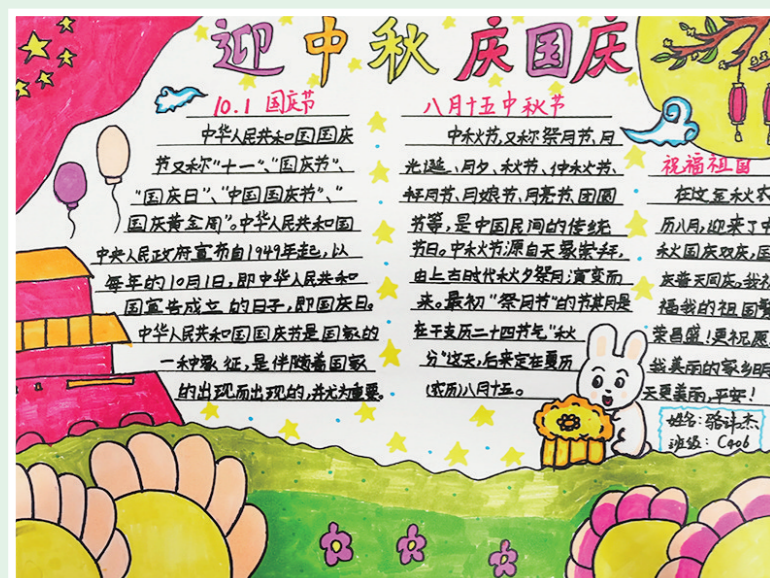 迎中秋 庆国庆
10.1 国庆节
中华人民共和国国庆
节又称“十一”、“国庆节”、
“国庆日”、“中国国庆节”、“
国庆黄金周”。中华人民共和国
中央人民政府宣布自1949年起，以
每年的10月1日，即中华人民共和
国宣告成立的日子，即国庆日。
中华人民共和国国庆节是国家的
一种象征，是伴随着国家
的出现而出现的，并尤为重要。
八月十五中秋节
中秋节，又称祭月节、月
光诞、月夕、秋节、仲秋节、
拜月节、月娘节、月亮节、团圆
节等，是中国民间的传统
节日。中秋节源自天象崇拜，
由上古时代秋夕祭月演变而
来。最初“祭月节”的节期是
在干支历二十四节气“秋
分”这天，后来定在夏历
（农历）八月十五。
祝福祖国
在这金秋农
历八月，迎来了中
秋国庆双庆，国
庆普天同庆。我祝
福我的祖国繁
荣昌盛！更祝愿
我美丽的家乡明
天更美丽，平安！
姓名：骆诗杰
班级：C406